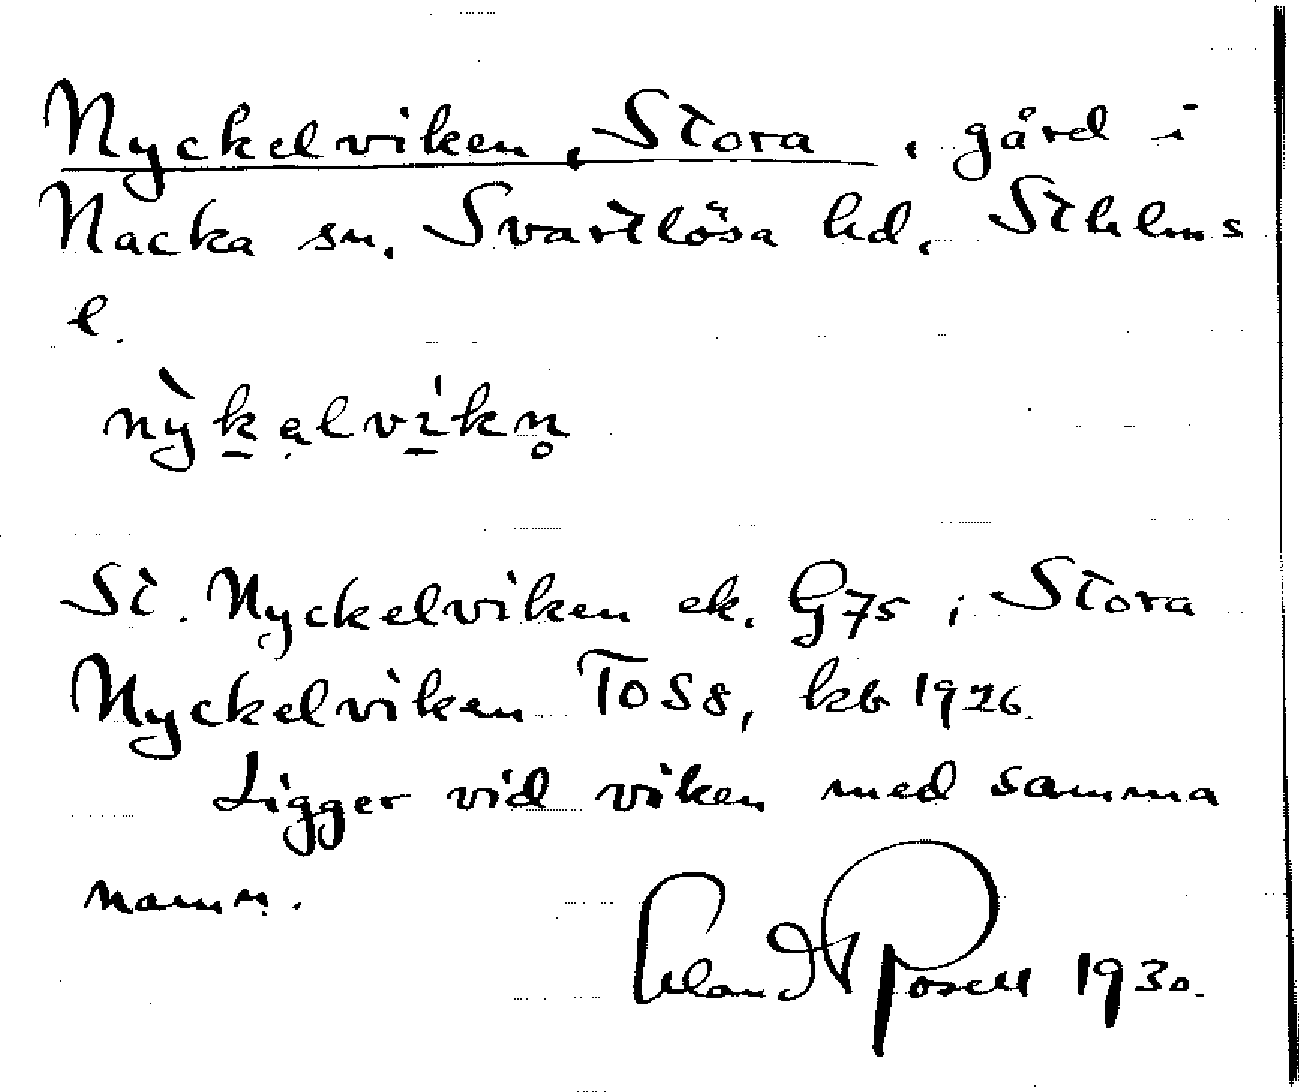 Nyckelviken, Stora, gård i
Nacka sn, Svartlösa hd, Sthlms
l.
nỳk̲ạlvi̲kn̥
St. Nyckelviken ek. G75; Stora
Nyckelviken TOS8, kb 1926.
Ligger vid viken med samma
namn.
Erland Rosell 1930.